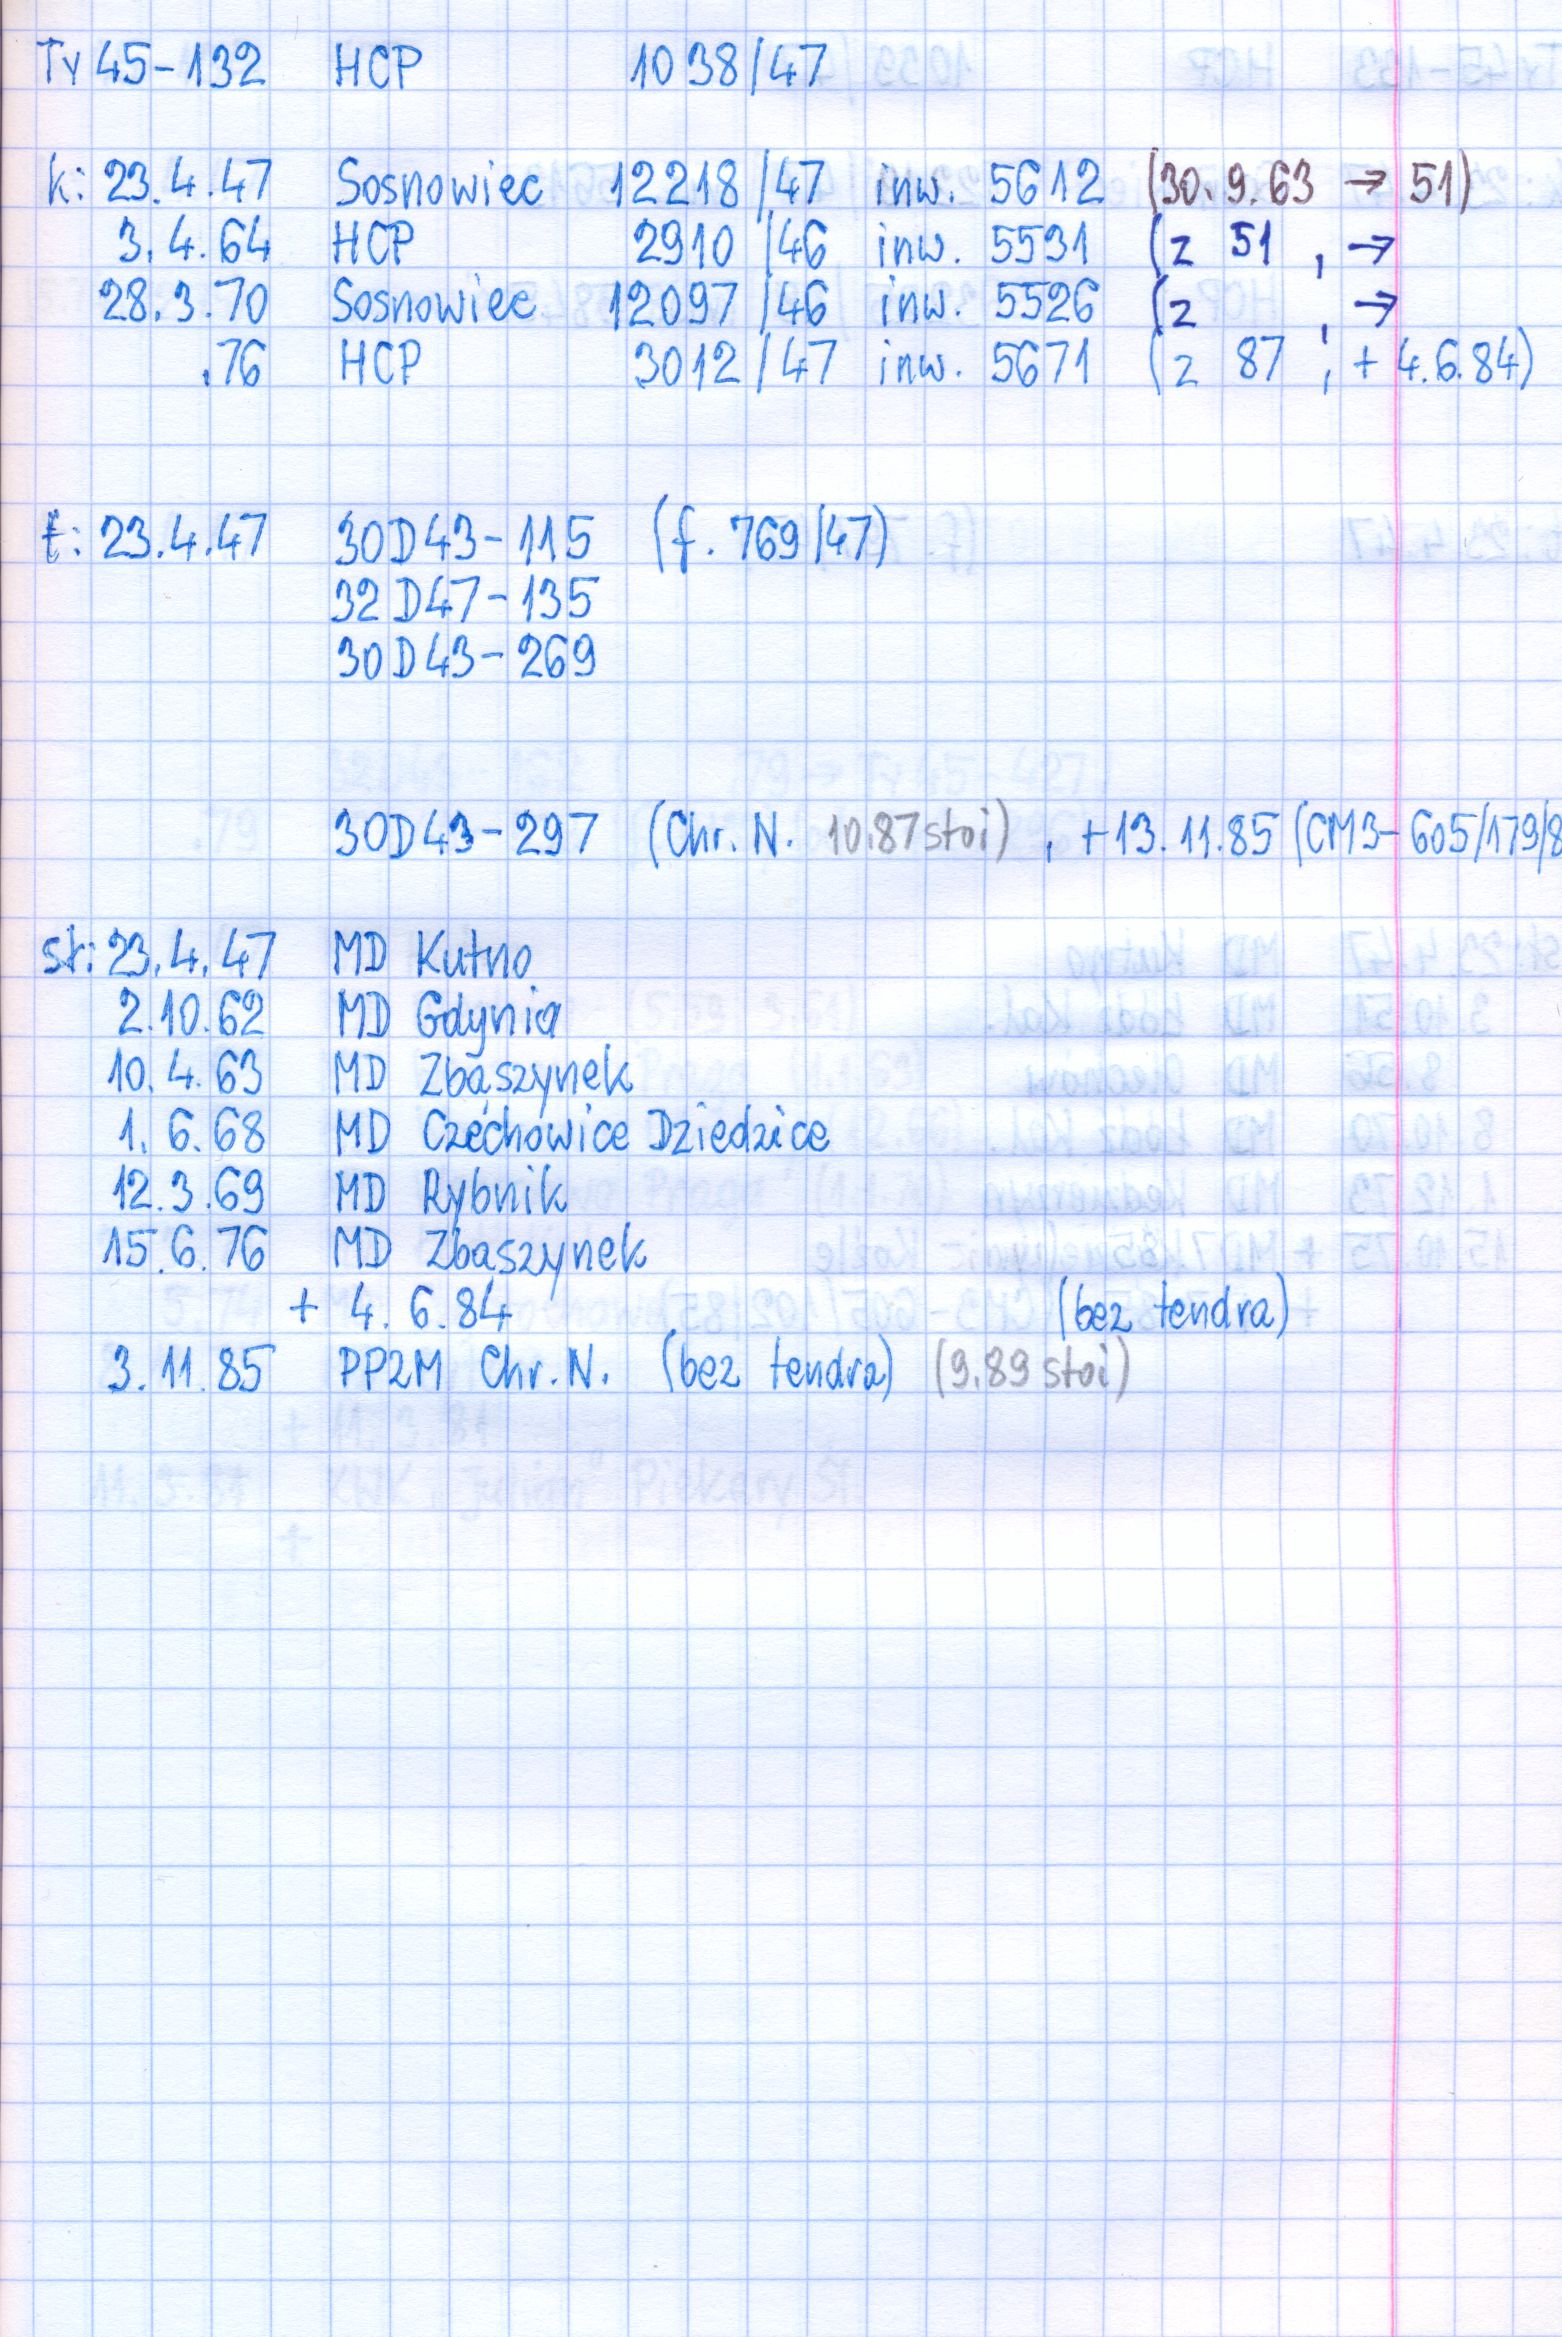 Ty 45-132 HCP 1038/47
k: 23.4.47 Sosnowiec 12218/47 inw. 5612 (30.9.63 → 51)
3.4.64 HCP 2910/46 inw. 5531 (z 51 , →
28.3.70 Sosnowiec 12097/46 inw. 5526 (z , →
.76 HCP 3012/47 inw. 5671 (z 87 , + 4.6.84)
t: 23.4.47 30D43-115 (f. 769/47)
32D47-135
30D43-269
30D43-297 (Chr. N. 10.87 stoi) , +13.11.85 (CM3-605/179/8
st: 23.4.47 MD Kutno
2.10.62 MD Gdynia
10.4.63 MD Zbąszynek
1.6.68 MD Czechowice Dziedzice
12.3.69 MD Rybnik
15.6.76 MD Zbąszynek
+ 4.6.84 (bez tendra)
3.11.85 PP2M Chr. N. (bez tendra) (9.89 stoi)